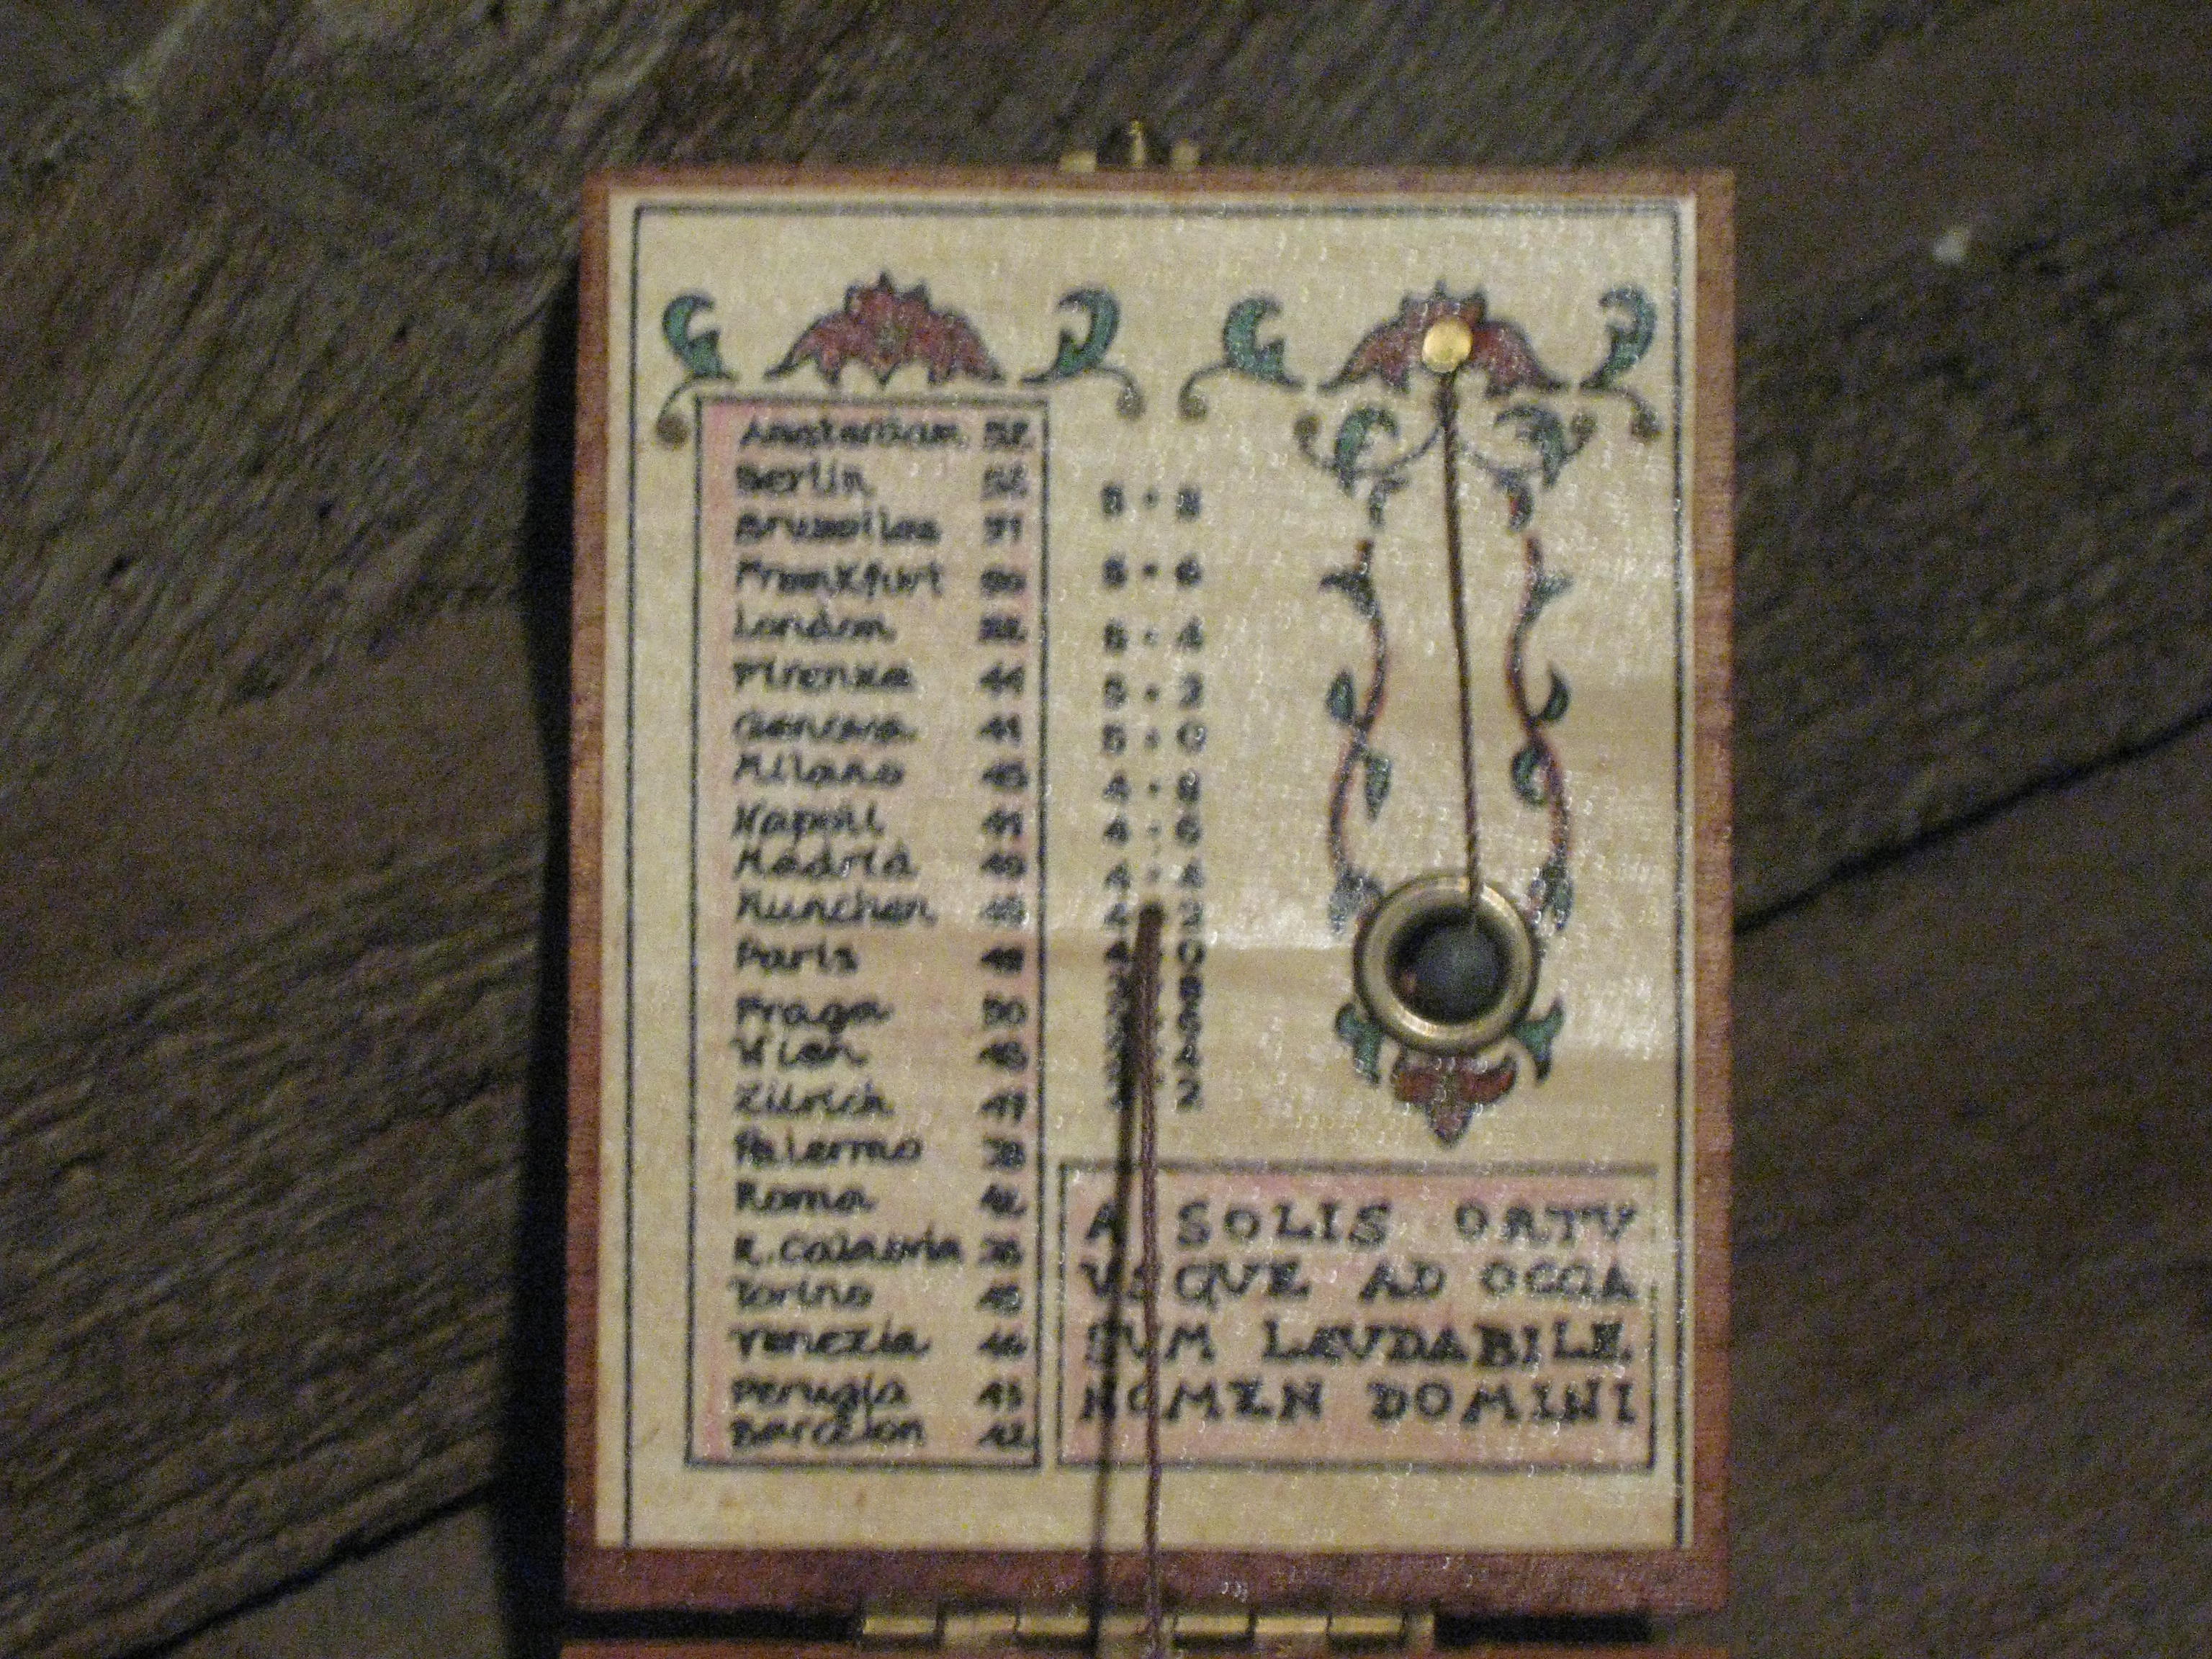 Amsterdam 52
Berlin 52
Bruxelles 51
Frankfurt 50
London 52
Firenze 44
Genova 44
Milano 45
Napoli 41
Madrid 40
Munchen 48
Paris 49
Praga 50
Wien 48
Zürich 47
Palermo 38
Roma 42
R. Calabria 38
Torino 45
Venezia 46
Perugia 43
Barcelon 42
5 · 8
5 · 6
5 · 4
5 · 2
5 · 0
4 · 8
4 · 6
4 · 4
4 2
4 0
8
6
4
2
A SOLIS ORTV
VSQVE AD OCCA
SVM LAVDABILE
NOMEN DOMINI